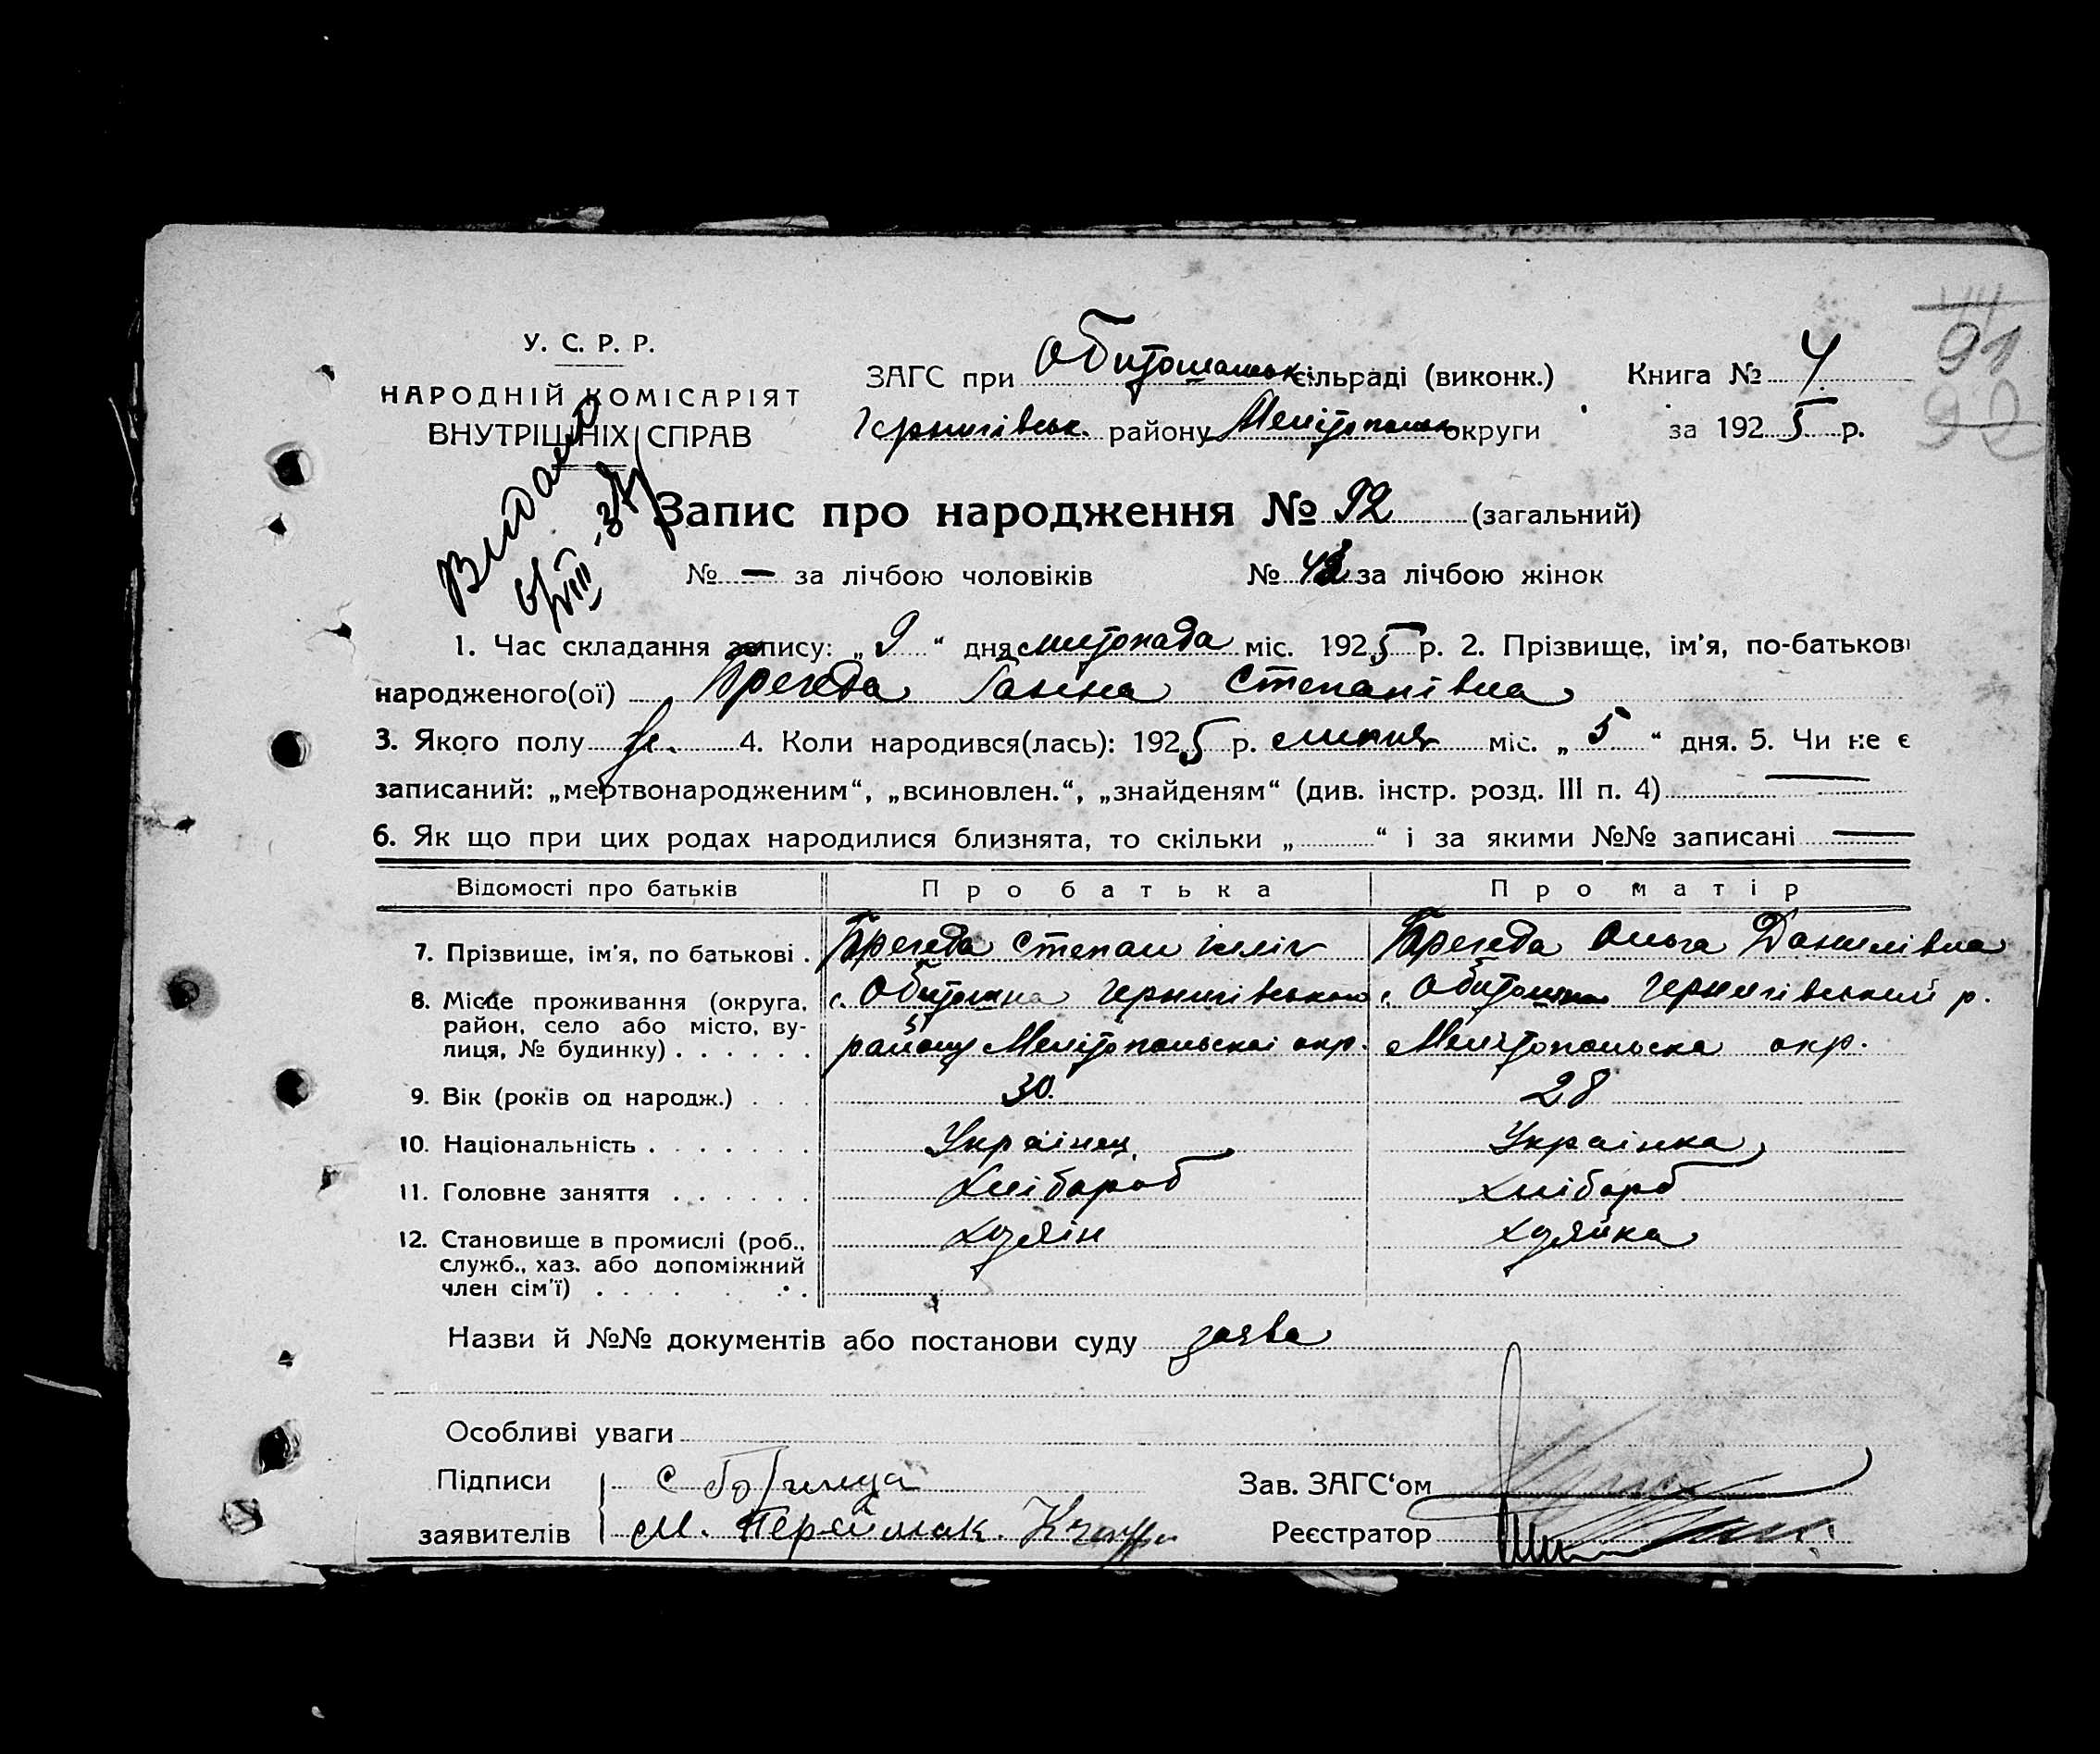 У. С. Р. Р.
НАРОДНІЙ КОМІСАРІЯТ
ВНУТРІШНІХ СПРАВ
Видано
6/VIII -34
ЗАГС при Обиточанськ. сільраді (виконк.)
Чернигівськ. району Мелітопольськ округи
Книга № 4
за 1925 р.
91
92
Запис про народження № 92 (загальний)
№ — за лічбою чоловіків № 43 за лічбою жінок
1. Час складання запису: „9“ дня листопада міс. 1925 р. 2. Прізвище, ім'я, по-батькові
народженого(ої) Брегеда Ганна Степанівна
3. Якого полу ж. 4. Коли народився(лась): 1925 р. липня міс. „5“ дня. 5. Чи не є
записаний: „мертвонародженим“, „всиновлен.“, „знайденям“ (див. інстр. розд. III п. 4) —
6. Як що при цих родах народилися близнята, то скільки „ “ і за якими №№ записані —
Відомості про батьків Про батька Про матір
7. Прізвище, ім'я, по батькові . Брегеда Степан Ілліч Брегеда Ольга Данилівна
8. Місце проживання (округа, район, село або місто, вулиця, № будинку) . . . . . .
с. Обиточна Чернигівського
району Мелітопольскоі окр.
с. Обиточна Чернигівський р.
Мелітопольска окр.
9. Вік (років од народж.) . . . 30. 28
10. Національність . . . . . . . Українец Украінка
11. Головне заняття . . . . . . Хлібороб Хліборб
12. Становище в промислі (роб., служб., хаз. або допоміжний член сім'ї) . . . .
Хозяін Хозяйка
Назви й №№ документів або постанови суду заява
Особливі уваги
Підписи
заявителів
С
М. Перетмак.
Зав. ЗАГС'ом
Реєстратор